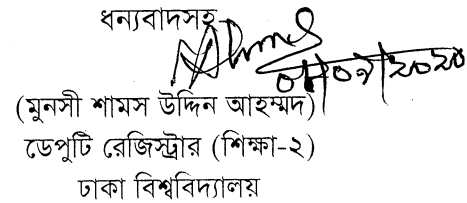 ধন্যবাদসহ
(মুনসী শামস উদ্দিন আহম্মদ)
ডেপুটি রেজিস্ট্রার (শিক্ষা-২)
ঢাকা বিশ্ববিদ্যালয়